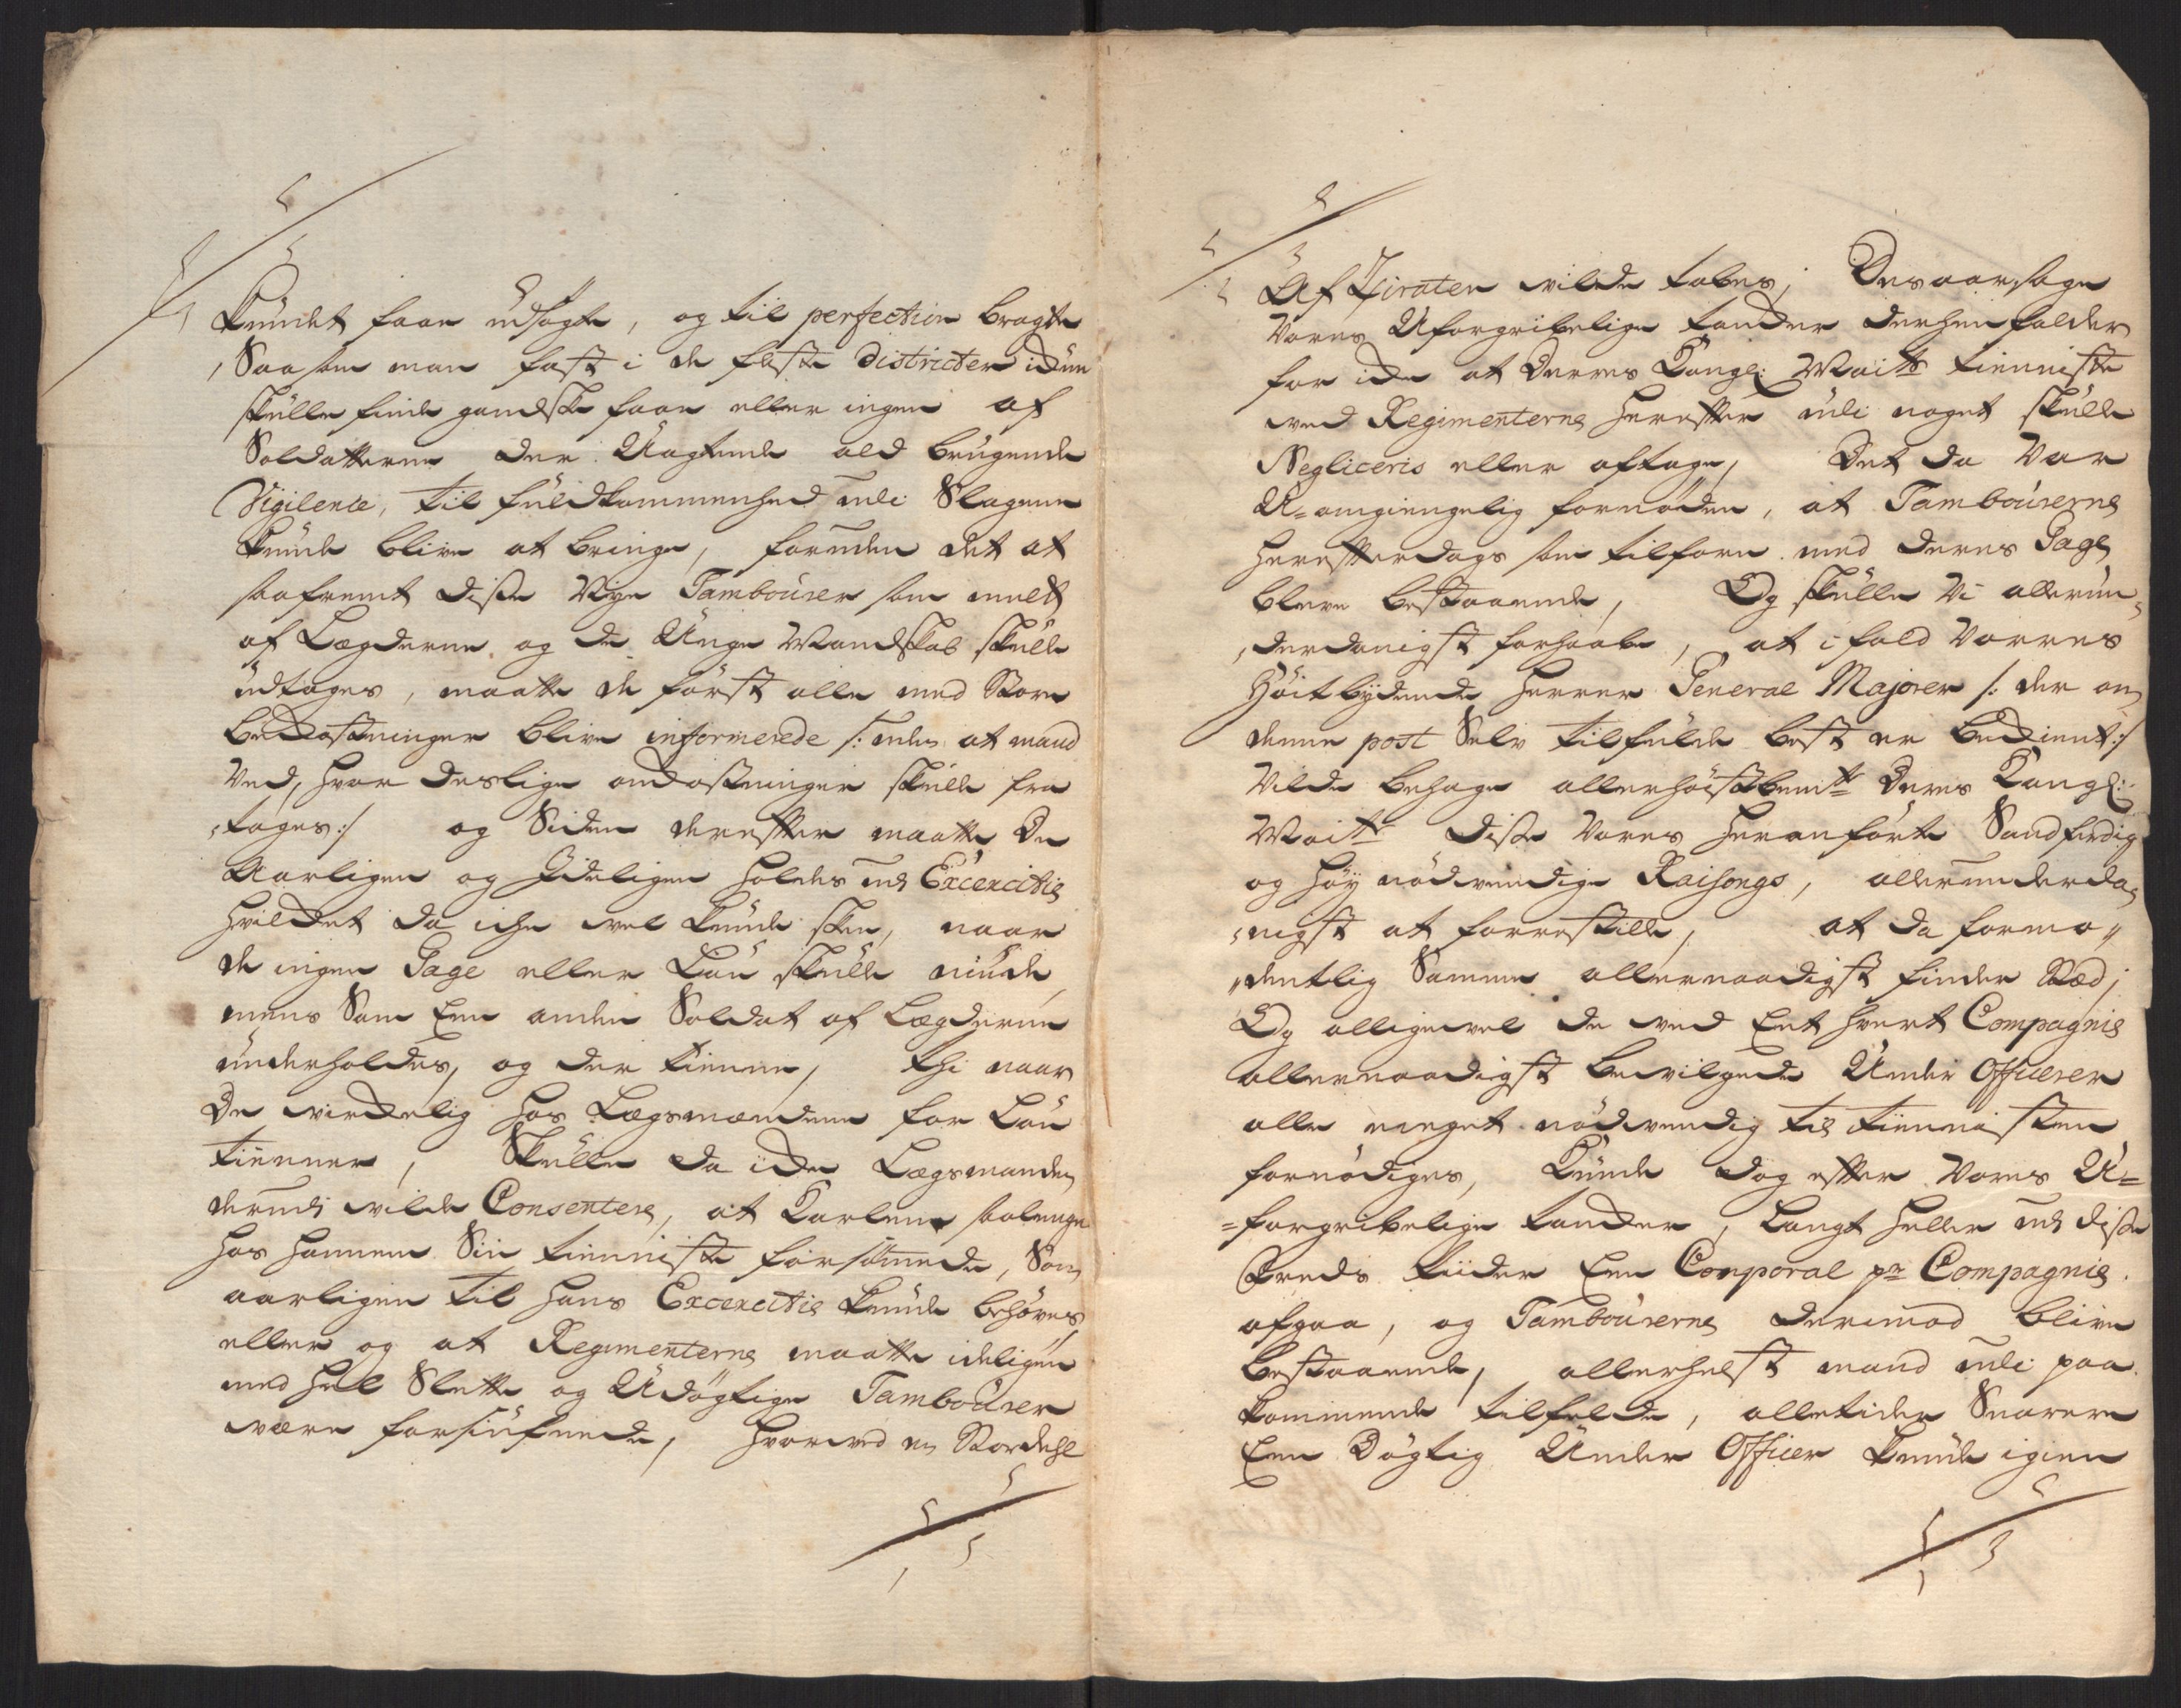 Kundet faae udsøgte, og til perfection bragte
Saasom man fast i de fleste Districter icke
skulle finde gandske faae eller ingen af
Soldatterne der Uagtende ald brugende
Vigilence, til fuldkommenhed udi Slagene
kunde blive at bringe, foruden det at
saafremt disse Nye Tambourer som nu
af Lægderne og de Unge Mandskab skulle
udtages, maatte de først alle med Store
bekostninger blive informerede /: uden at mand
Ved, hvor deslige omkostninger skulle fra
tages :/ og Siden derefter maatte De
Aarligen og Jdeligen holdes ved Excercitie
hvilcket da iche vel kunde skee, naar
de ingen Gage eller Løn skulle niude,
mens Som Een anden Soldat af Lægderne
underholdes, og der tienne, thi naar
De virckelig hos Lægsmændene for Løn
tienner, Skulle da icke Lægsmanden
derudi ville Consentere, at Karlene saalenge
hos hannem Sin tienniste forsømmede, Som
aarligen til hans Excercitie kunde behøves,
eller og at Regimenterne maatte ideligen
med heel Slette og Udøgtige Tambourer
være forsiufnede, hvorved en Stordehl
Af Ziraten vilde tabes; Desaarsage
Vores Uforgribelige tancker derhen falder
for icke at Deres Kongl: Maits tienniste
ved Regimenterne herefter udi noget skulle
Negliceris eller aftage, Det da Var
U-omgiengelig fornøden, at Tambourerne
herefterdags som tilforn med deres Gage
bleve bestaaende, Og skulle Vi allerun-
derdanigst forhaabe, at ifald Vorres
Høitbydende Herrer General Majorer /: der om
denne post Selv tilfulde best er bekient :/
Vilde behage allerhøistbemte Deres Kongl:
Maitt disse Vores heranførte Sandferdige
og høy nødvendige Raisongs, allerunderda-
nigst at forrestille, at da formo-
dentlig Samme allernaadigst finder Stæd;
Og alligevel de ved Eet hvert Compagnie
allernaadigst bevilgede Under Officerer
alle meget nødvendig til tiennisten
fornødiges, Kunde dog efter Vores U=
=forgribelige tancker, Langt heller ved disse
Freds tiider Een Corporal pr Compagnie
afgaa, og Tambourerne derimod blive
bestaaende, allerhelst mand udi paa
kommende tilfelde, alletider Snarere
Een Døgtig Under Officer kunde igien